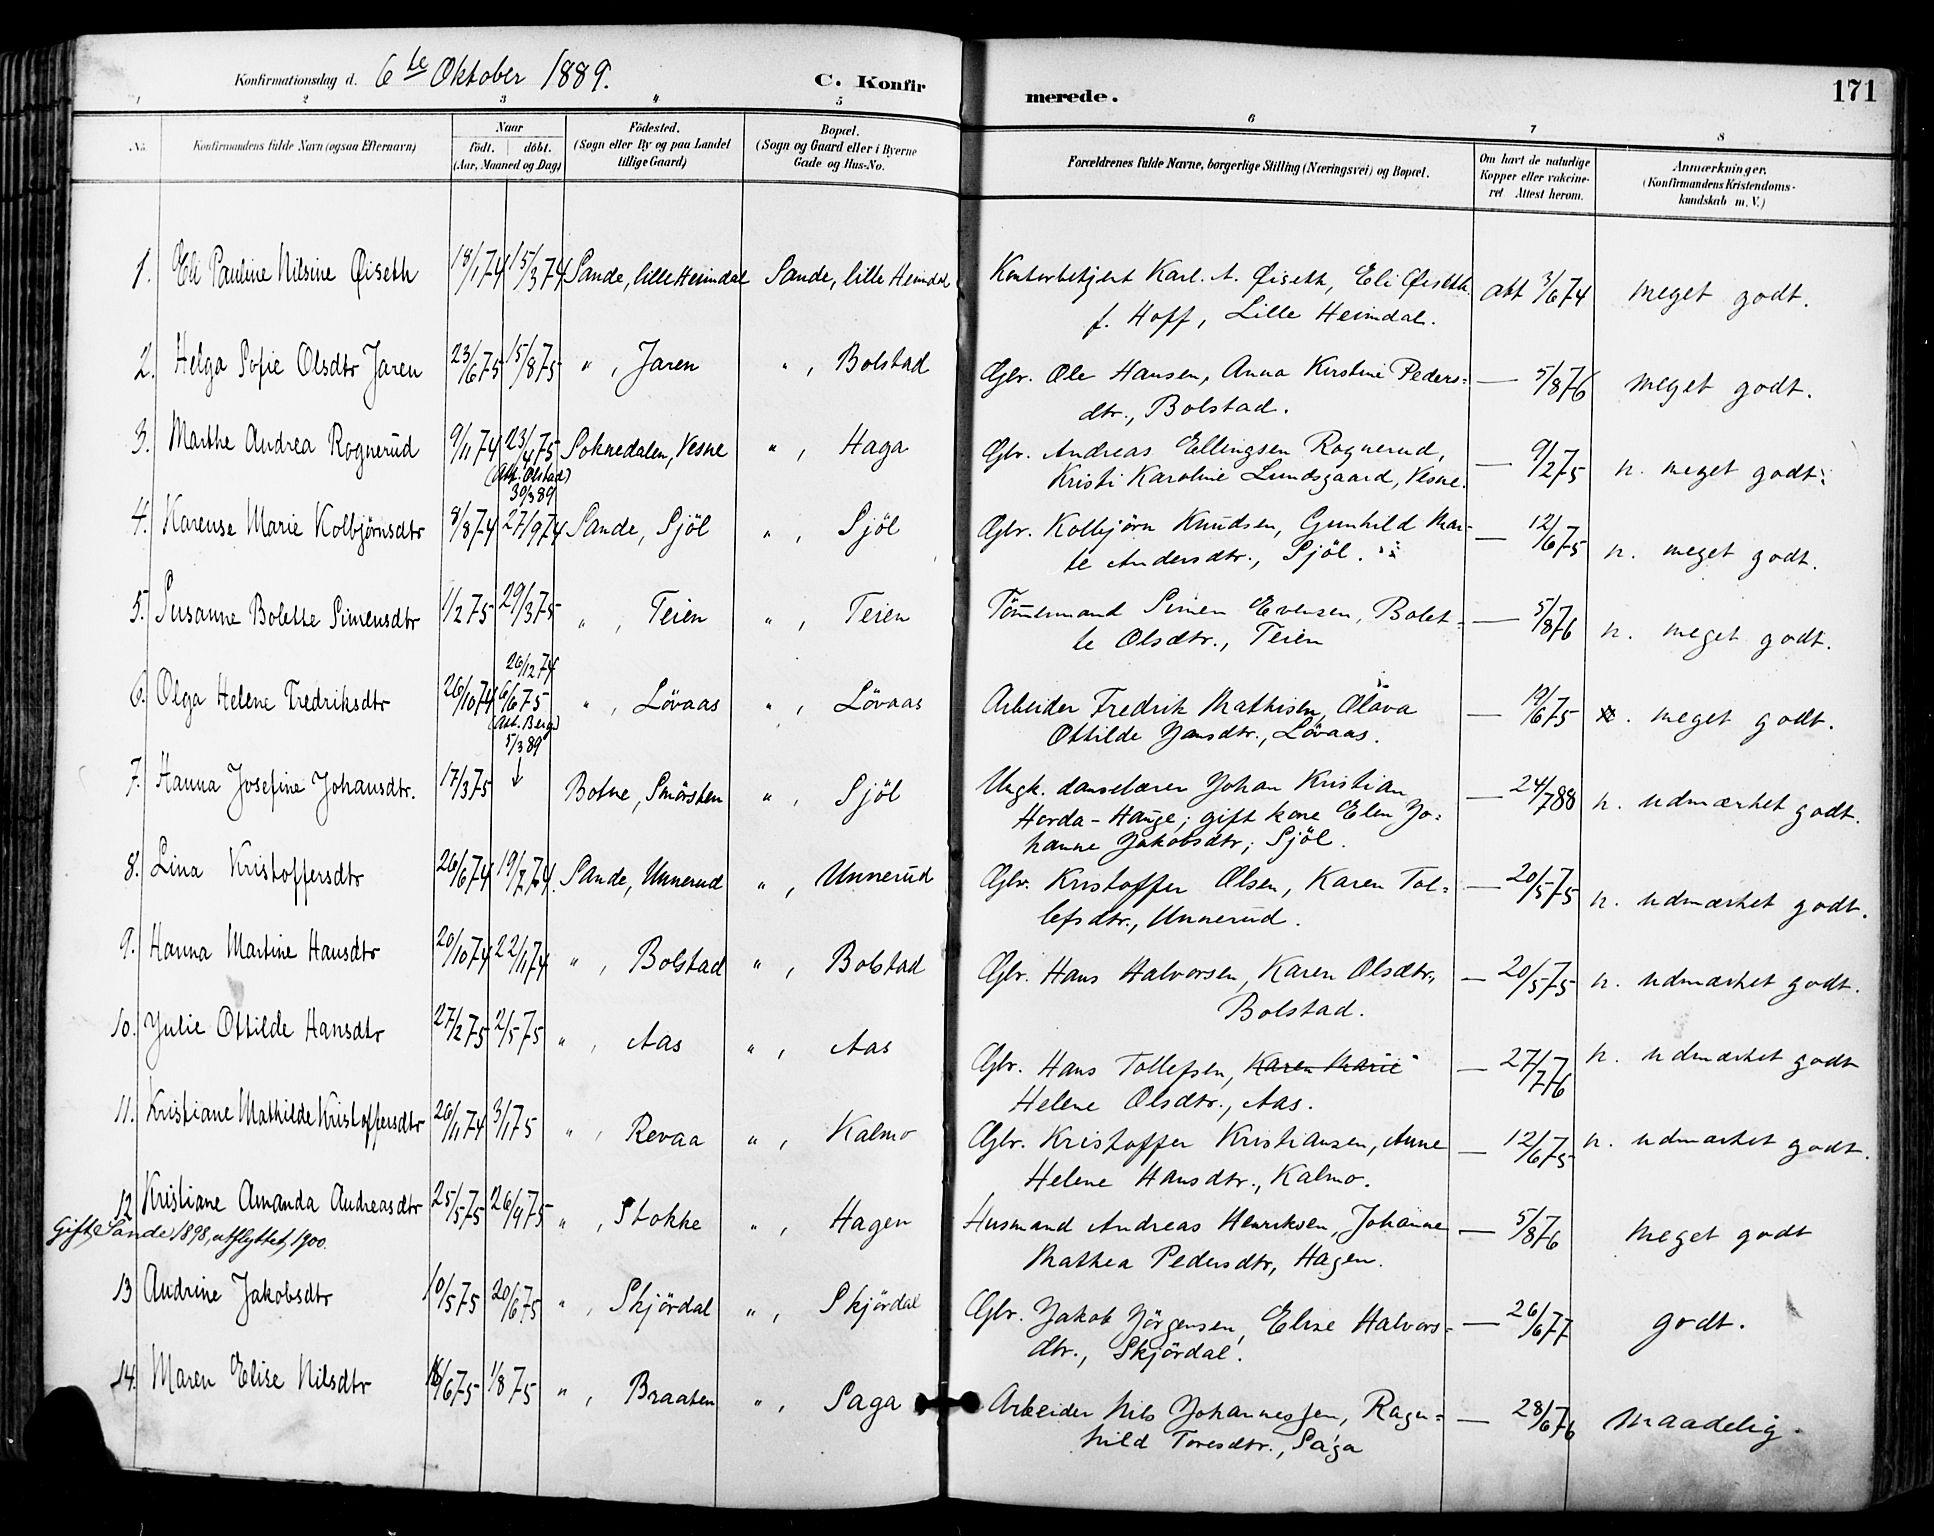 Konfirmationsdag d. 6te Oktober 1889.
C. Konfirmerede.
171
1 2 3 4 5 6 7 8
No.
Konfirmandens fulde Navn (ogsaa Efternavn)
Naar
født. døbt.
(Aar, Maaned og Dag)
Födested.
(Sogn eller By og paa Landet
tillige Gaard)
Bopæl.
(Sogn og Gaard eller i Byerne
Gade og Hus-No.
Forældrenes fulde Navne, borgerlige Stilling (Næringsvei) og Bopæl.
Om havt de naturlige
Kopper eller vakcine-
ret Attest herom.
Anmærkninger.
(Konfirmandens Kristendoms-
kundskab m. V.)
1. Eli Pauline Nilsine Øiseth 18/1 74 15/3 74 Sande, lille Heimdal Sande, lille Heimdal Kontorbetjent Karl. A. Øiseth, Eli Øiseth att 3/6 74 meget godt.
f. Hoff, Lille Heimdal.
2. Helga Sofie Olsdtr Jaren 23/6 75 15/8 75 " , Jaren " , Bolstad Gbr. Ole Hansen, Anna Kirstine Peders= — 5/8 76 meget godt.
dtr., Bolstad.
3. Marthe Andrea Rognerud 9/11 74 23/4 75 Soknedalen, Vesne " , Haga Gbr. Andreas Ellingsen Rognerud, — 9/2 75 n. meget godt.
(Att. Olstad) Kristi Karoline Lundsgaard, Vesne.
30/3 89
4. Karense Marie Kolbjørnsdtr 8/8 74 27/9 74 Sande, Sjöl " , Sjöl Gbr. Kolbjörn Knudsen, Gunhild Mar- — 12/6 75 n. meget godt.
te Andersdtr., Sjöl.
5. Susanne Bolette Simensdtr 1/2 75 29/3 75 " , Teien " , Teien Tömmermand Simen Evensen, Bolet- — 5/8 76 n. meget godt.
te Olsdtr., Teien
26/12 74
6. Olga Helene Fredriksdtr 26/10 74 6/6 75 " , Lövaas " , Lövaas Arbeider Fredrik Mathisen, Olava — 19/6 75 n. meget godt.
(Att. Berg) Ottilde Jansdtr., Lövaas.
5/3 89
7. Hanna Josefine Johansdtr. 17/3 75 ↓ Botne, Smörsten " , Sjöl Ungk. danselærer Johan Kristian — 24/7 88 n. udmærket godt.
Horda-Hauge; gift kone Elen Jo-
hanne Jakobsdtr; Sjöl.
8. Lina Kristoffersdtr 26/6 74 19/7 74 Sande, Unnerud " , Unnerud Gbr. Kristoffer Olsen, Karen Tol= — 20/5 75 n. udmærket godt.
lefsdtr., Unnerud.
9. Hanna Martine Hansdtr 20/10 74 22/11 74 " , Bolstad " , Bolstad Gbr. Hans Halvorsen, Karen Olsdtr, — 20/5 75 n. udmærket godt.
Bolstad.
10. Julie Ottilde Hansdtr 27/2 75 2/5 75 " , Aas " , Aas Gbr. Hans Tollefsen, Karen Marie — 27/7 76 n. udmærket godt
Helene Olsdtr., Aas.
11. Kristiane Mathilde Kristoffersdtr 26/11 74 3/1 75 " , Revaa " , Kalmo Gbr. Kristoffer Kristiansen, Anne — 12/6 75 n. udmærket godt.
Helene Hansdtr., Kalmo.
12. Kristiane Amanda Andreasdtr 25/5 75 26/9 75 " , Stokke " , Hagen Husmand Andreas Henriksen, Johanne — 5/8 76 meget godt
Gift, Sande 1898, utflyttet, 1900. Mathea Pedersdtr, Hagen.
13 Andrine Jakobsdtr 10/5 75 20/6 75 " , Skjördal " , Skjördal Gbr. Jakob Jörgensen, Elise Halvors- — 26/6 77 godt.
dtr., Skjördal.
14. Maren Elise Nilsdtr 16/6 75 1/8 75 " , Braaten " , Saga Arbeider Nils Johannessen, Ragn= — 28/6 76 maadelig.
hild Toresdtr., Saga